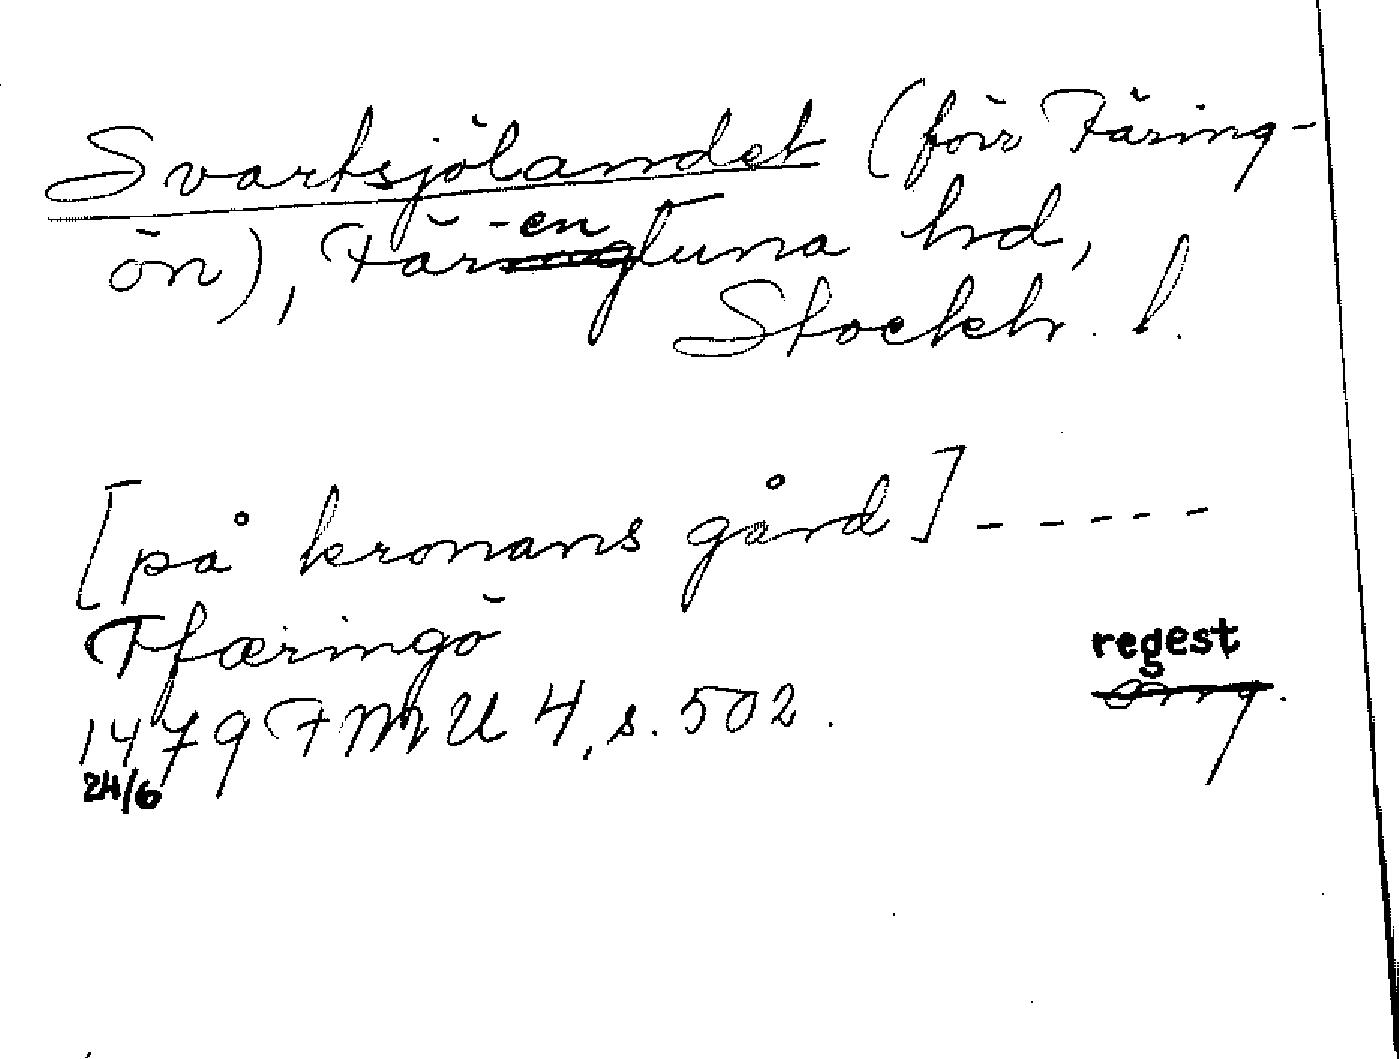 Svartsjölandet (förr Färing-
ön), Färentuna hd,
Stockh. l.
[på kronans gård] -----
Ffæringö
regest
1479 FMU 4, s. 502.
24/6